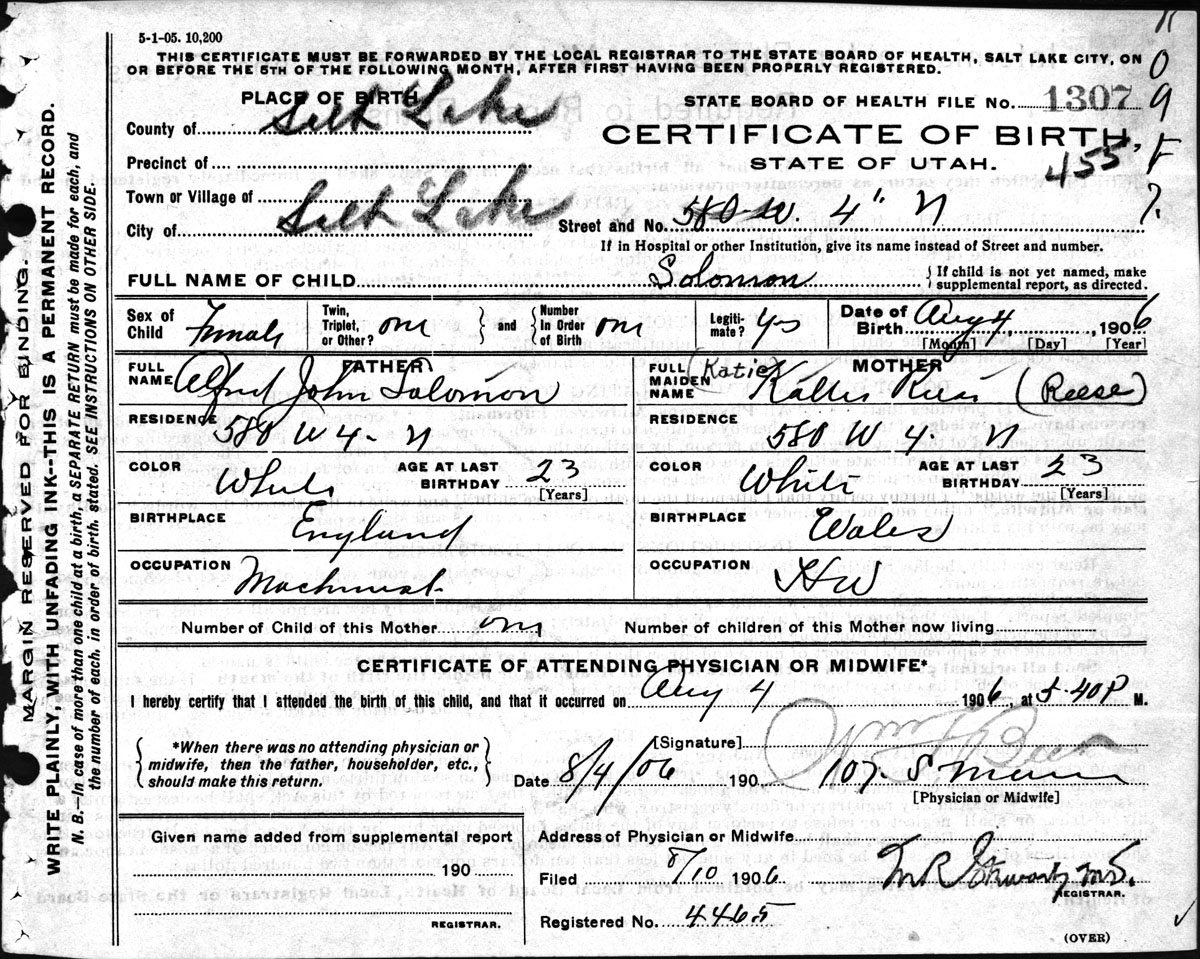 5-1-05. 10,200
THIS CERTIFICATE MUST BE FORWARDED BY THE LOCAL REGISTRAR TO THE STATE BOARD OF HEALTH, SALT LAKE CITY, ON
OR BEFORE THE 5TH OF THE FOLLOWING MONTH, AFTER FIRST HAVING BEEN PROPERLY REGISTERED.
MARGIN RESERVED FOR BINDING.
WRITE PLAINLY, WITH UNFADING INK--THIS IS A PERMANENT RECORD.
N. B.--In case of more than one child at a birth, a SEPARATE RETURN must be made for each, and
the number of each, in order of birth, stated. SEE INSTRUCTIONS ON OTHER SIDE.
PLACE OF BIRTH
STATE BOARD OF HEALTH FILE No. 1307
County of Salt Lake
CERTIFICATE OF BIRTH,
STATE OF UTAH.
455
Precinct of
Town or Village of
City of Salt Lake
Street and No. 580 W. 4" N
If in Hospital or other Institution, give its name instead of Street and number.
FULL NAME OF CHILD Solomon
{If child is not yet named, make
supplemental report, as directed.
Sex of Child Female
Twin, Triplet, or Other? one
and Number In Order Of Birth one
Legitimate? Yes
Date of Birth Aug 4, 1906
[Month] [Day] [Year]
FATHER
FULL NAME Alfred John Solomon
MOTHER
FULL MAIDEN NAME (Katie) Kattie Rees (Reese)
RESIDENCE 580 W 4- N
RESIDENCE 580 W 4" N
COLOR White AGE AT LAST BIRTHDAY 23 [Years]
COLOR White AGE AT LAST BIRTHDAY 23 [Years]
BIRTHPLACE England
BIRTHPLACE Wales
OCCUPATION Machinist
OCCUPATION HW
Number of Child of this Mother one Number of children of this Mother now living
CERTIFICATE OF ATTENDING PHYSICIAN OR MIDWIFE*
I hereby certify that I attended the birth of this child, and that it occurred on Aug 4 1906, at 5.40 P M.
{*When there was no attending physician or
midwife, then the father, householder, etc.,
should make this return.}
[Signature]
Date 8/4/06 190
107. S Main
[Physician or Midwife]
Given name added from supplemental report
190
REGISTRAR.
Address of Physician or Midwife
Filed 8/10 1906
REGISTRAR.
Registered No. 4465
(OVER)